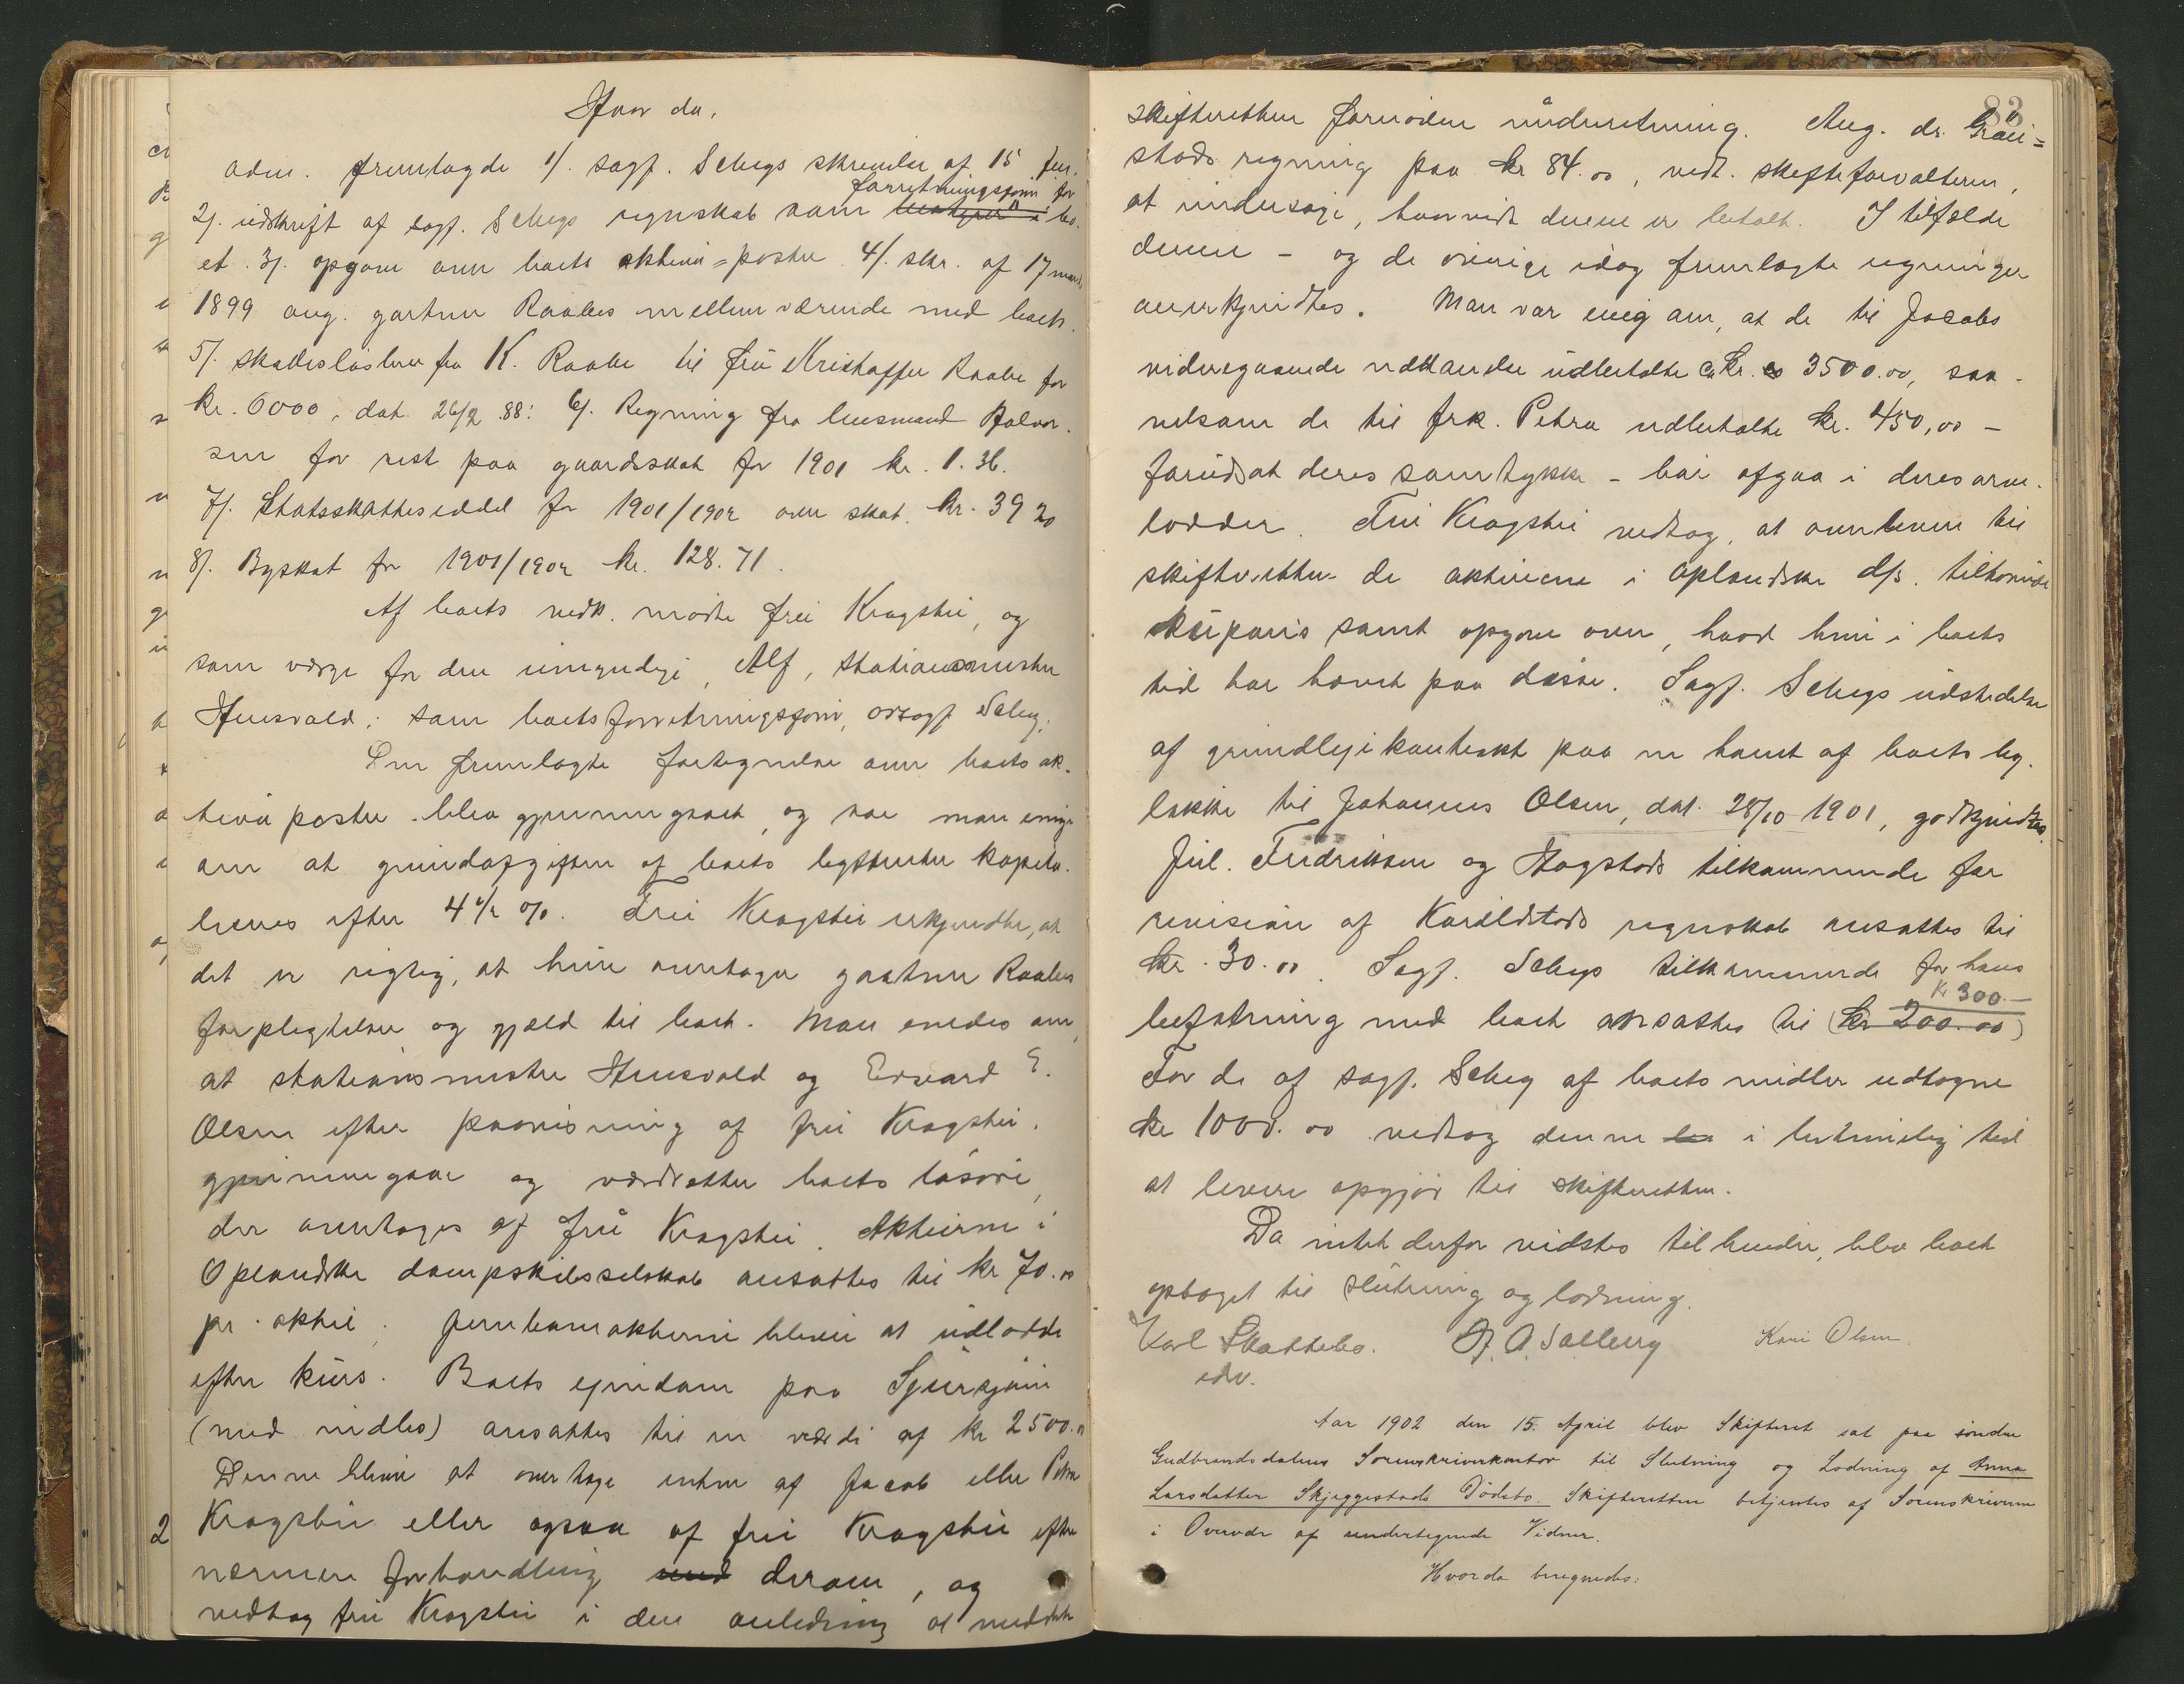 Hvor da,
adm. fremlagde 1/. sagf. Schegs skrivelse af 15 jan.
forretningsfører for
2/. udskrift af sagf. Schegs regnskab som bestyrer i bo-
et. 3/. opgave over boets aktiva-poster 4/. skr. af 17 mars
1899 ang. gartner Raabes mellemværende med boet.
5/. skadesløsbrev fra K. Raabe til fru Kristoffer Raabe for
kr. 6000, dat. 26/2 88: 6/. Regning fra lensmand Halvor-
sen for rest paa gaardsskat for 1901 kr. 1.36.
7/. Statsskatteseddel for 1901/1902 over skat kr. 39 20
8/. Byskat for 1901/1902 kr. 128.71.
Af boets vedk. mødte fru Kragsbü, og
som værge for den umyndige, Alf, stationsmester
Huusvald; som boets forretningsfører, o.r.sagf. Scheg.
Den fremlagte fortegnelse over boets ak-
tiva poster blev gjennemgaaet, og var man enige
om at grundafgiften af boets bygtomter kapita-
liseres efter 4 1/2 %. Fru Kragsbü erkjendte, at
det er rigtig, at hun overtager gartner Raabes
forpligtelser og gjæld til boet. Man enedes om,
at stationsmester Huusvald og Edvard E.
Olsen efter paavisning af fru Kragsbü.
gjennemgaar og værdsætter boets løsøre,
der overtages af fru Kragsbü. Aktierne i
Oplandske dampskibsselskab ansattes til kr 70.00
pr. aktie. Jernbaneaktierne bliver at udlodde
efter kurs. Boets eiendom paa Sjusjøen
(med indbo) ansattes til en værdi af kr 2500.00
Denne bliver at overtage enten af Jacob eller Petra
2 Kragsbü eller ogsaa af fru Kragsbü efter
nærmere forhandling med derom, og
vedtog fru Kragsbü i den anledning at meddele
83
skifteretten fornøden underretning. Ang. dr. Grøn-
stads regning paa kr 84.00, vedt. skifteforvalteren,
at undersøge, hvorvidt denne er betalt. I tilfælde
denne - og de øvrige idag fremlagte regninger
anerkjendtes. Man var enig om, at de til Jacobs
videregaaende uddannelse udbetalte ca. kr. 3500.00, saa-
velsom de til frk. Petra udbetalte kr. 450,00 -
forudsat deres samtykke - bør afgaa i deres arve-
lodder. Fru Kragsbü vedtog, at overlevere til
skifteretten de aktierne i Oplandske d/s. tilhørende
kuponer samt opgave over, hvad hun i boets
tid har hævet paa disse. Sagf. Schegs udstedelse
af grundleiekontrakt paa en tomt af boets byg-
løkke til Johannes Olsen, dat. 28/10 1901, godkjendtes.
Jul. Fredriksen og Hagstads tilkommende for
revision af Karlldstads regnskab ansattes til
kr. 30.00. Sagf. Schegs tilkommende for hans
Kr 300.-
befatning med boet ansattes til (kr 200.00)
For de af sagf. Scheg af boets midler udtagne
kr 1000.00 vedtog denne be i betimelig tid
at levere opgjør til skifteretten.
Da intet derfor vidstes til hinder, blev boet
optaget til slutning og lodning.
Karl Skattebo. A. Solberg Kari Olsen.
edv.
Aar 1902 den 15. April blev Skifteret sat paa søndre
Gudbrandsdalens Sorenskriverkontor til Slutning og Lodning af Anna
Larsdatter Skjeggestads Dødsbo. Skifteretten betjentes af Sorenskriveren
i Overvær af undertegnede Vidner.
Hvorda beregnedes: